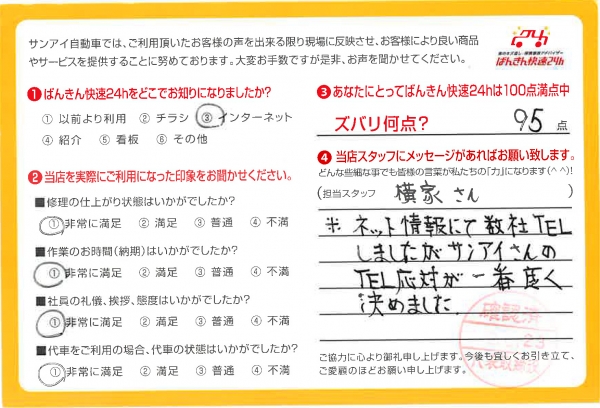 サンアイ自動車では、ご利用頂いたお客様の声を出来る限り現場に反映させ、お客様により良い商品
やサービスを提供することに努めております。大変お手数ですが是非、お声を聞かせてください。
ばんきん快速24h
❶ばんきん快速24hをどこでお知りになりましたか?
① 以前より利用 ② チラシ ③ インターネット
④ 紹介 ⑤ 看板 ⑥ その他
❷当店を実際にご利用になった印象をお聞かせください。
■修理の仕上がり状態はいかがでしたか?
① 非常に満足 ② 満足 ③ 普通 ④ 不満
■作業のお時間(納期)はいかがでしたか?
① 非常に満足 ② 満足 ③ 普通 ④ 不満
■社員の礼儀、挨拶、態度はいかがでしたか?
① 非常に満足 ② 満足 ③ 普通 ④ 不満
■代車をご利用の場合、代車の状態はいかがでしたか?
① 非常に満足 ② 満足 ③ 普通 ④ 不満
❸あなたにとってばんきん快速24hは100点満点中
ズバリ何点? 95 点
❹当店スタッフにメッセージがあればお願い致します。
どんな些細な事でも皆様の言葉が私たちの「力」になります(^ ^)!
(担当スタッフ 横家さん )
※ ネット情報にて数社TEL
しましたがサンアイさんの
TEL応対が一番良く
決めました
確認済
ご協力に心より御礼申し上げます。今後も宜しくお引き立て、
ご愛顧のほどお願い申し上げます。